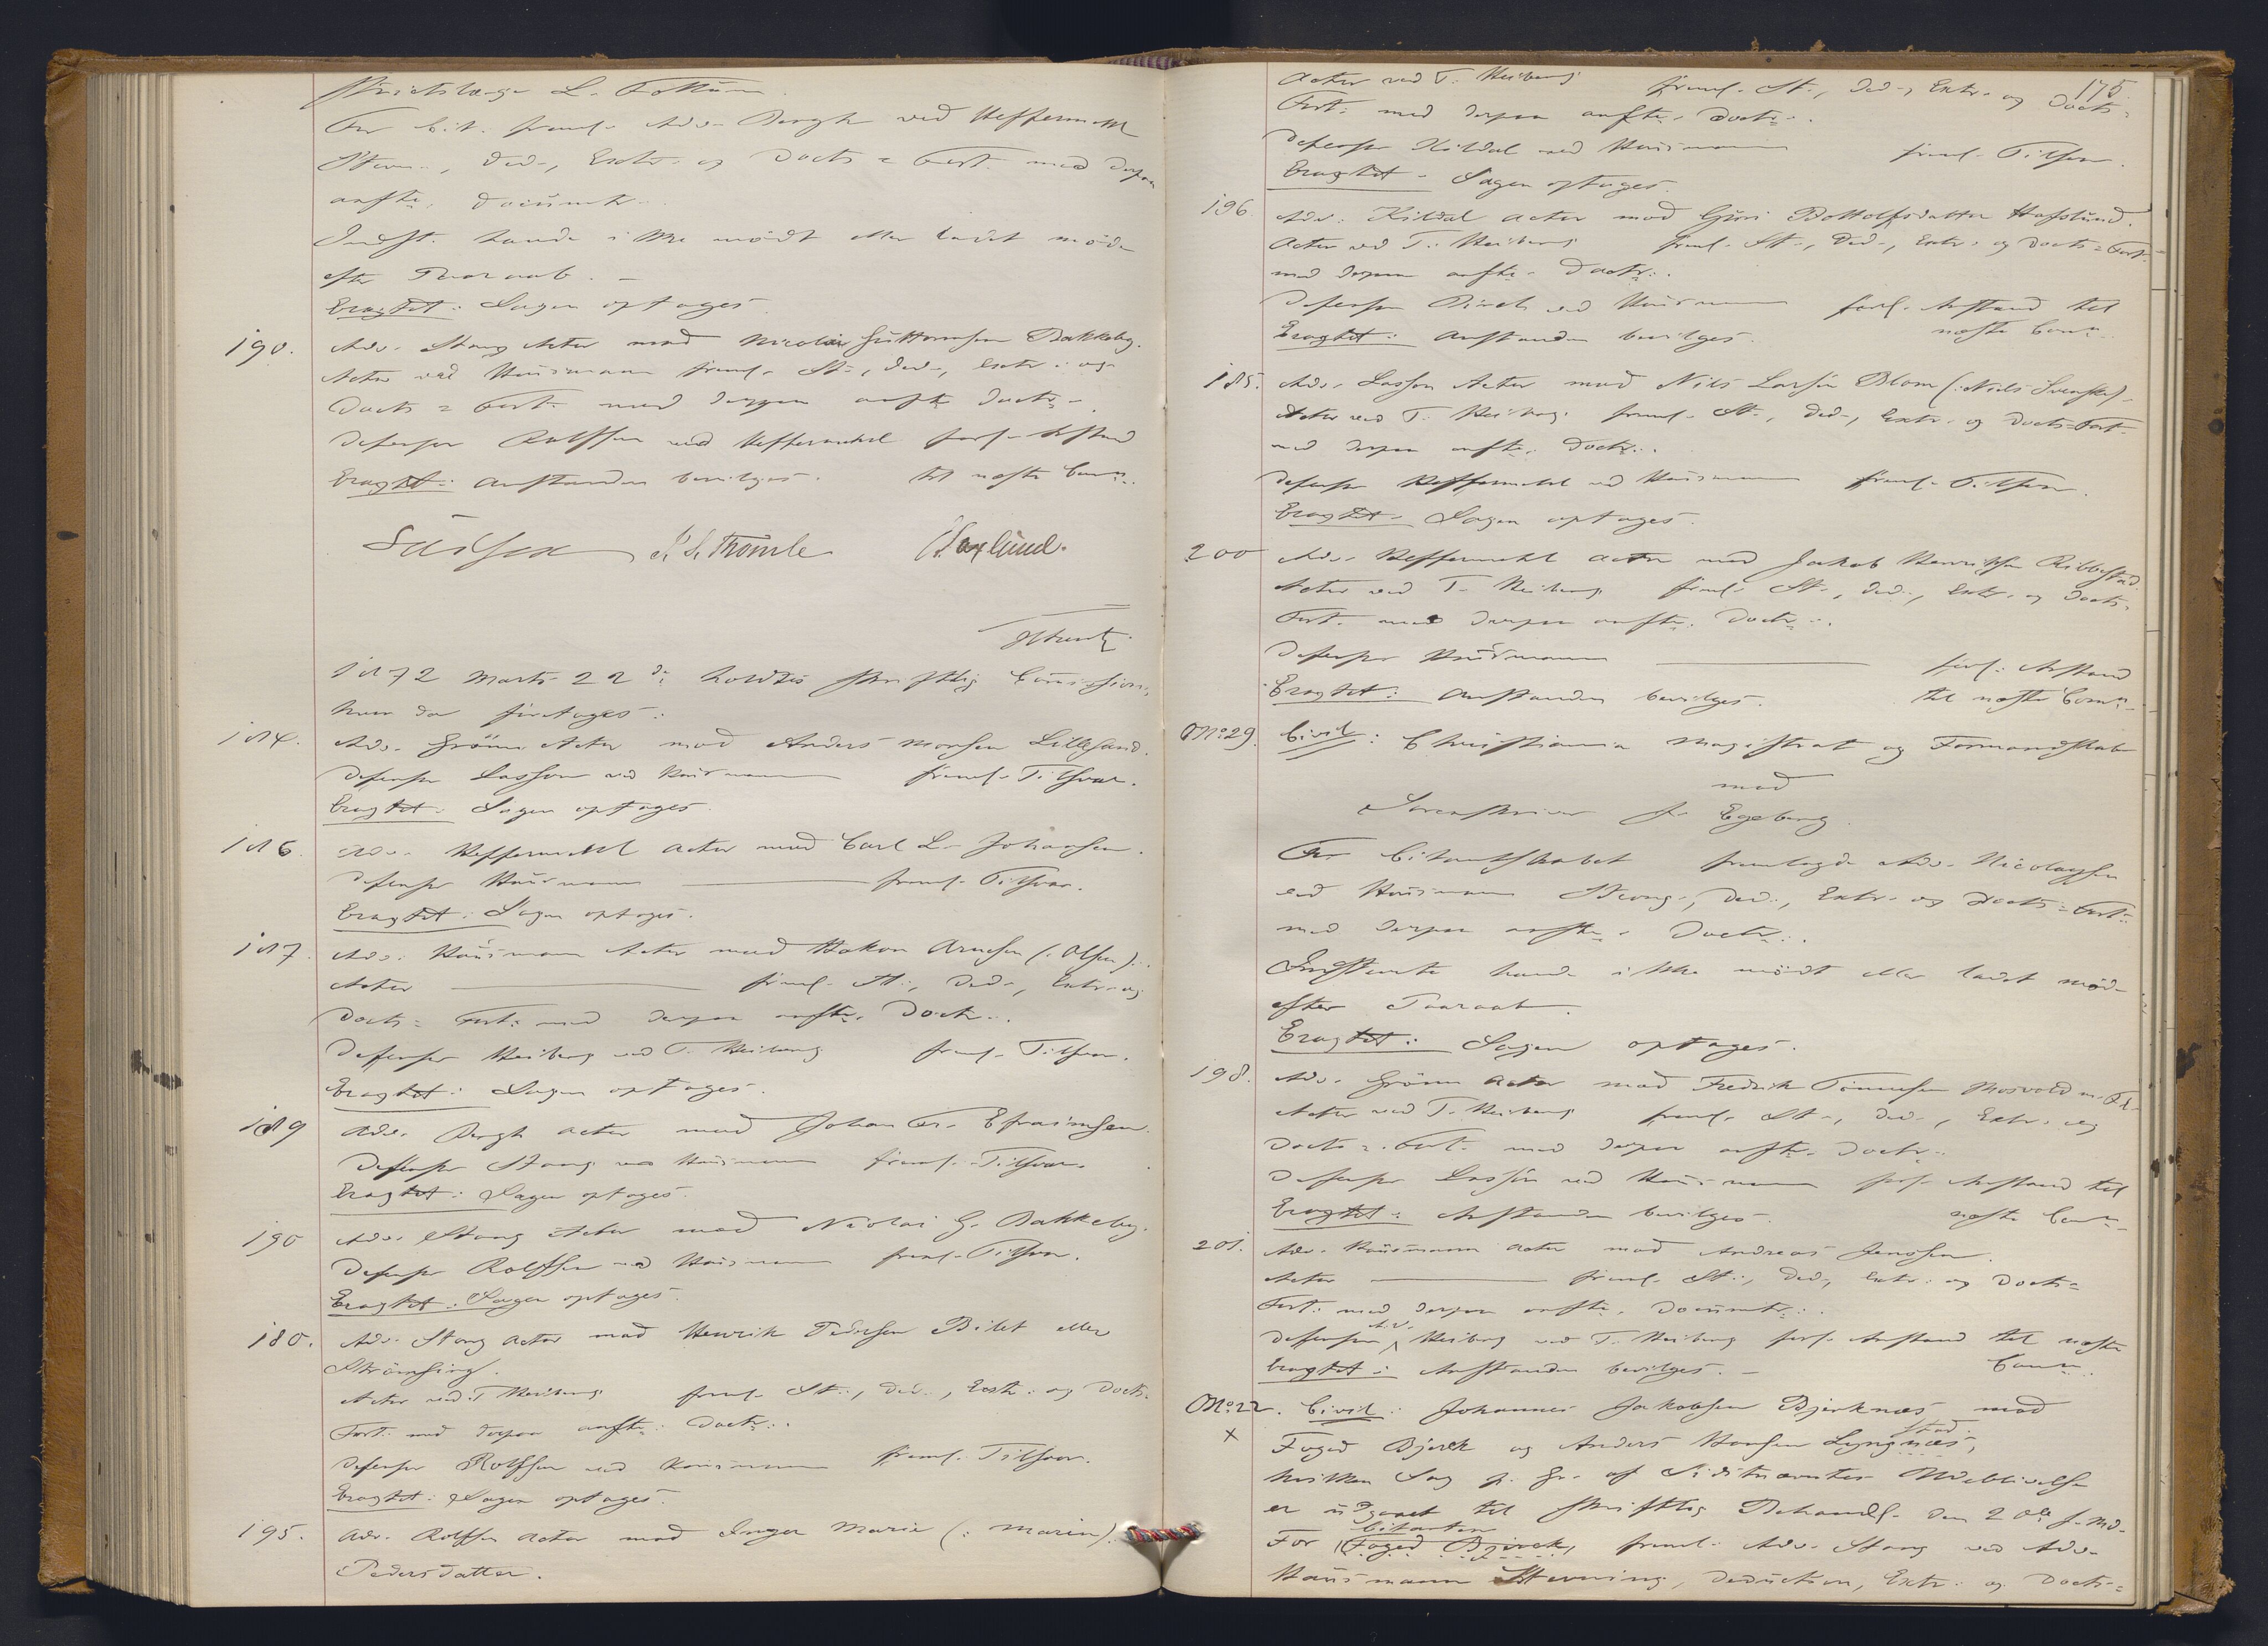 striktslæge L. Tottum.
For Cit. freml. Adv. Bergh ved Heffermehl
Stevn., Ded., Extr. og Docts = Fort. med derpaa
anfte. Documtr.
Indst. havde ikke mödt eller ladet möde
efter Paaraab. -
Eragtet: Sagen optages.
190. Adv. Stang Actor mod Nicolai Guttormsen Bakkeby.
Actor ved Hausmann freml. St., Ded., Extr. og
Docts = Fort. med derpaa anfte Doctr.
Defensor Rolfsen ved Heffermehl forl. Anstand
Eragtet: Anstanden bevilges. til næste Comn.
P. I. Thomle Haxlund.
1872 Marts 22de holdtes skriftlig Commission,
hvor da foretages:
184. Adv. Grönn Actor mod Anders Monsen Lillesand.
Defensor Lasson ved Hausmann freml. Tilsvar.
Eragtet: Sagen optages.
186. Adv. Heffermehl Actor mod Carl L. Johansen.
Defensor Hausmann freml. Tilsvar.
Eragtet: Sagen optages.
187. Adv. Hausmann Actor mod Hakon Arnesen (: Olsen).
Actor freml. St., Ded., Extr. og
Docts = Fort. med derpaa anfte. Doctr.
Defensor Heiberg ved T. Heiberg freml. Tilsvar.
Eragtet: Sagen optages.
189 Adv. Bergh Actor mod Johan Efraimsen.
Defensor Stang ved Hausmann freml. Tilsvar.
Eragtet: Sagen optages.
190 Adv. Stang Actor mod Nicolai G. Bakkeby.
Defensor Rolfsen ved Hausmann freml. Tilsvar.
Eragtet: Sagen optages.
180. Adv. Stang Actor mod Henrik Pedersen Bilet eller
Strömsing.
Actor ved T. Heiberg freml. St., Ded., Extr. og Docts.
Fort. med derpaa anfte. Doctr.
Defensor Rolfsen ved Hausmann freml. Tilsvar.
Eragtet: Sagen optages.
195. Adv. Rolfsen Actor mod Inger Marie (: Marin)
Pedersdatter.
175.
Actor ved T. Heiberg freml. St., Ded., Extr. og Docts =
Fort. med derpaa anfte. Doctr.
Defensor Kildal ved Hausmann freml. Tilsvar.
Eragtet - Sagen optages.
196. Adv. Kildal Actor mod Guri Bottolfsdatter Hafslund.
Actor ved T. Heiberg freml. St., Ded., Extr. og Docts = Fort.
med derpaa anfte. Doctr.
Defensor ved Hausmann forl. Anstand til
Eragtet: Anstanden bevilges. næste Comn.
185. Adv. Lasson Actor mod Nils Larsen Blom (: Niels Svenske).
Actor ved T. Heiberg freml. St., Ded., Extr. og Docts = Fort.
med derpaa anfte. Doctr.
Defensor Heffermehl ved Hausmann freml. Tilsvar.
Eragtet - Sagen optages.
200 Adv. Heffermehl Actor mod Jakob Henriksen Ribbestad.
Actor ved T. Heiberg freml. St., Ded., Extr. og Docts =
Fort. med derpaa anfte. Doctr.
Defensor Hausmann forl. Anstand
Eragtet: Anstanden bevilges. til næste Comn.
No. 29. Civil: Christiania Magistrat og Formandskab
mod
Sorenskriver F. Egeberg.
For Citantskabet fremlagde Adv. Nicolaysen
ved Hausmann Stevng., Ded., Extr. og Docts = Fort.
med derpaa anfte. Doctr.
Indstevnte havde ikke mödt eller ladet möde
efter Paaraab.
Eragtet: Sagen optages.
198. Adv. Grönn Actor mod Fredrik Tönnesen Mosvold m. Fl.
Actor ved T. Heiberg freml. St., Ded., Extr. og
Docts = Fort. med derpaa anfte. Doctr.
Defensor Lasson ved Hausmann forl. Anstand til
Eragtet: Anstanden bevilges. næste Comn.
201. Adv. Hausmann Actor mod Andreas Jensen.
Actor freml. St., Ded., Extr. og Docts =
Fort. med derpaa anfte. Documtr.
Defensor A.V. Heiberg ved T. Heiberg forl. Anstand til næste
Eragtet: Anstanden bevilges. - Comn.
No. 22. Civil: Johannes Jakobsen Bjerknæs mod
Foged Bjerck og Anders Hansen Lyngnæs, stad.
hvilken Sag p. Gr. af Udeblivelse
er udgaaet til skriftlig Behandl. den f. Md.
For Citanten (Foged Bjerck, freml. Adv. Stang ved Adv.
Hausmann Stevning, Deduction, Extr. og Docts =